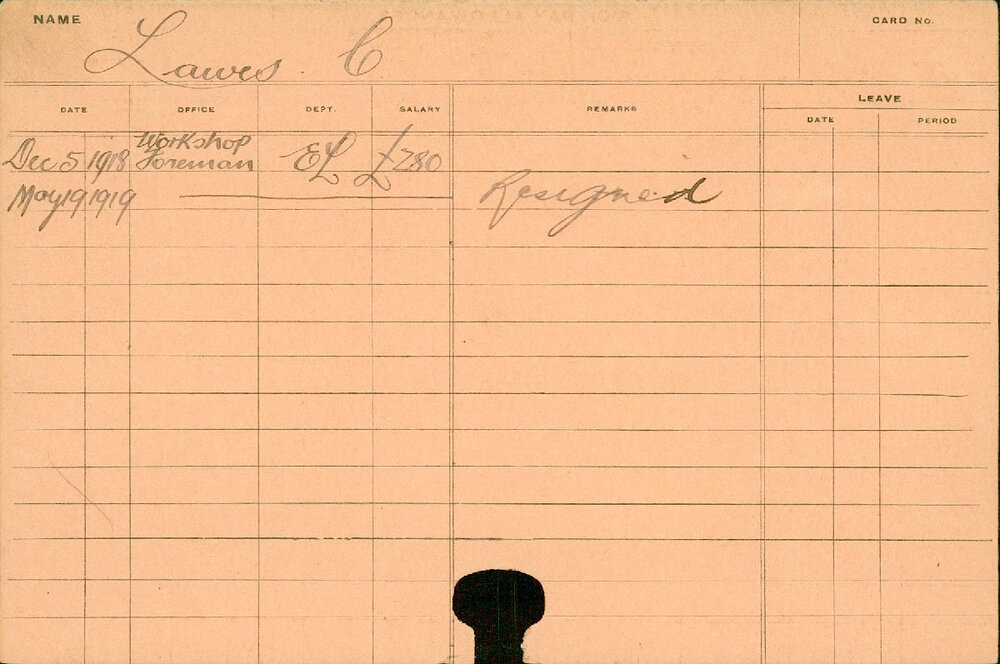 NAME Lawes. C CARD No.
DATE OFFICE DEPT. SALARY REMARKS LEAVE
DATE PERIOD
Dec 5 1918 Workshop Foreman EL £280
May 19 1919 Resigned